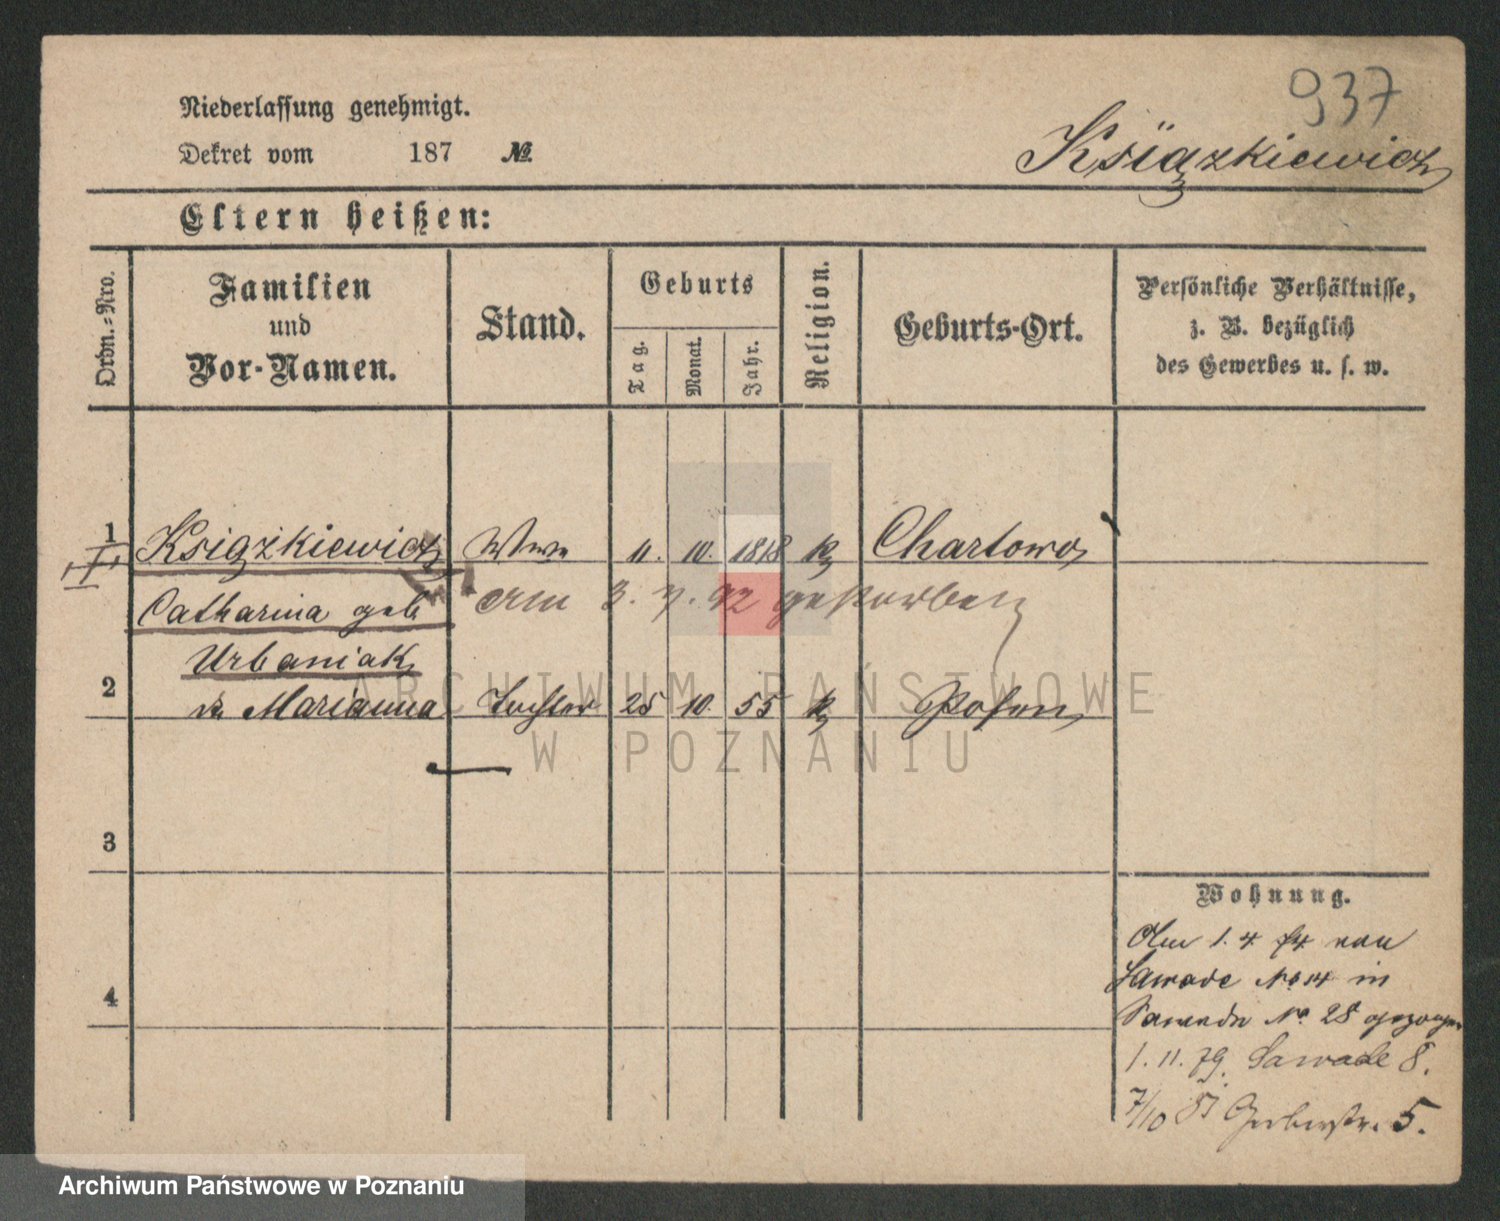 937
Niederlassung genehmigt.
Dekret vom 187 №
Książkiewicz
Eltern heißen:
Ordn.-Nro.
Familien und Vor-Namen.
Stand.
Geburts
Tag.
Monat.
Jahr.
Religion.
Geburts-Ort.
Persönliche Verhältnisse,
z. B. bezüglich
des Gewerbes u. s. w.
1 Książkiewicz Wwe 11. 10. 1818 k Chartowo
Catharina geb Am 3. 7. 92 gestorben
Urbaniak
2 Marianna Tochter 25 10. 55 k Posen
3
4
Wohnung.
Am 1. 4 74 von
Sawade No 14 in
Sawade No 28 gezogen
1. 11. 79. Sawade 8.
7/10 81 Gerberstr. 5.
ARCHIWUM PAŃSTWOWE
W POZNANIU
Archiwum Państwowe w Poznaniu